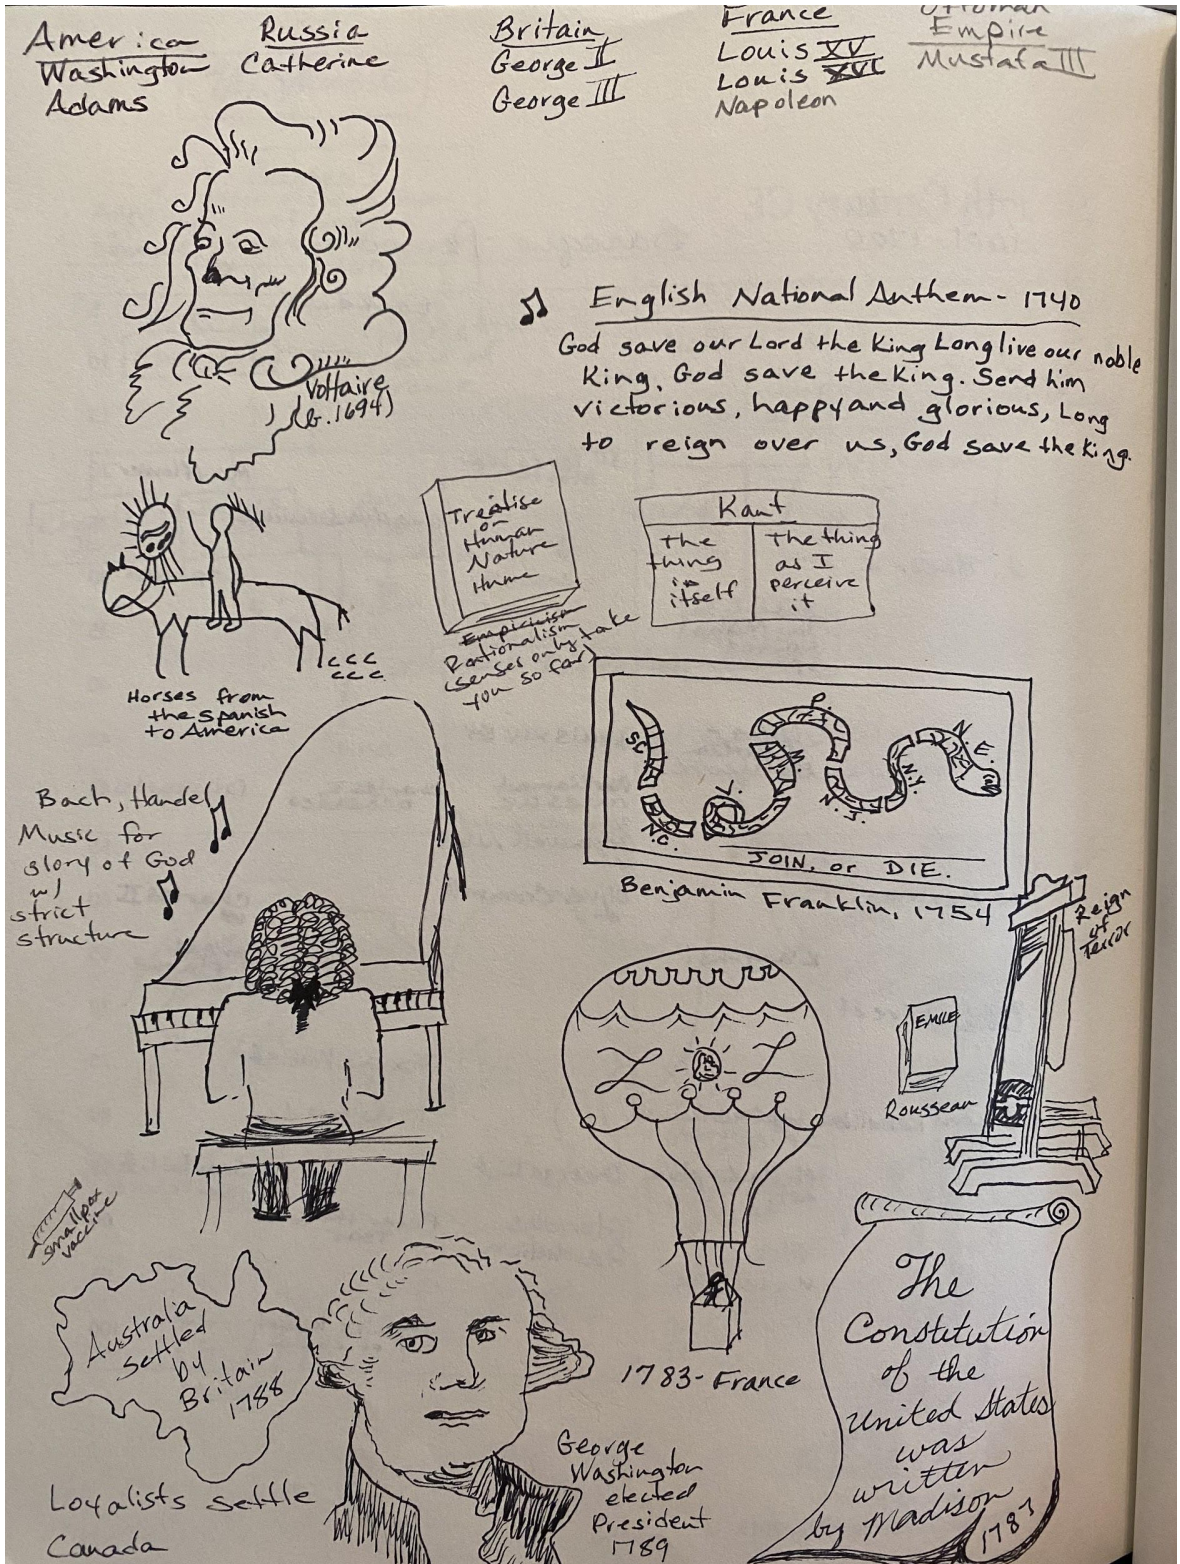 America
Washington
Adams
Russia
Catherine
Britain
George II
George III
France
Louis XV
Louis XVI
Napoleon
Ottoman
Empire
Mustafa III
Voltaire
(b. 1694)
English National Anthem - 1740
God save our Lord the King Long live our noble
King, God save the King. Send him
victorious, happy and glorious, Long
to reign over us, God save the King.
Treatise
on
Human
Nature
Hume
Empiricism
Rationalism
(senses only take
you so far)
Kant
The
thing
in
itself
The thing
as I
perceive
it
Horses from
the Spanish
to America
S.C.
N.C.
V.
M.
P.
N.J.
N.Y.
N.E.
JOIN, or DIE.
Benjamin Franklin, 1754
Bach, Handel
Music for
glory of God
w/
strict
structure
Reign
of
Terror
EMILE
Rousseau
smallpox
vaccine
Australia
settled
by
Britain
1788
1783 - France
Loyalists settle
Canada
George
Washington
elected
President
1789
The
Constitution
of the
United States
was
written
by Madison
1787